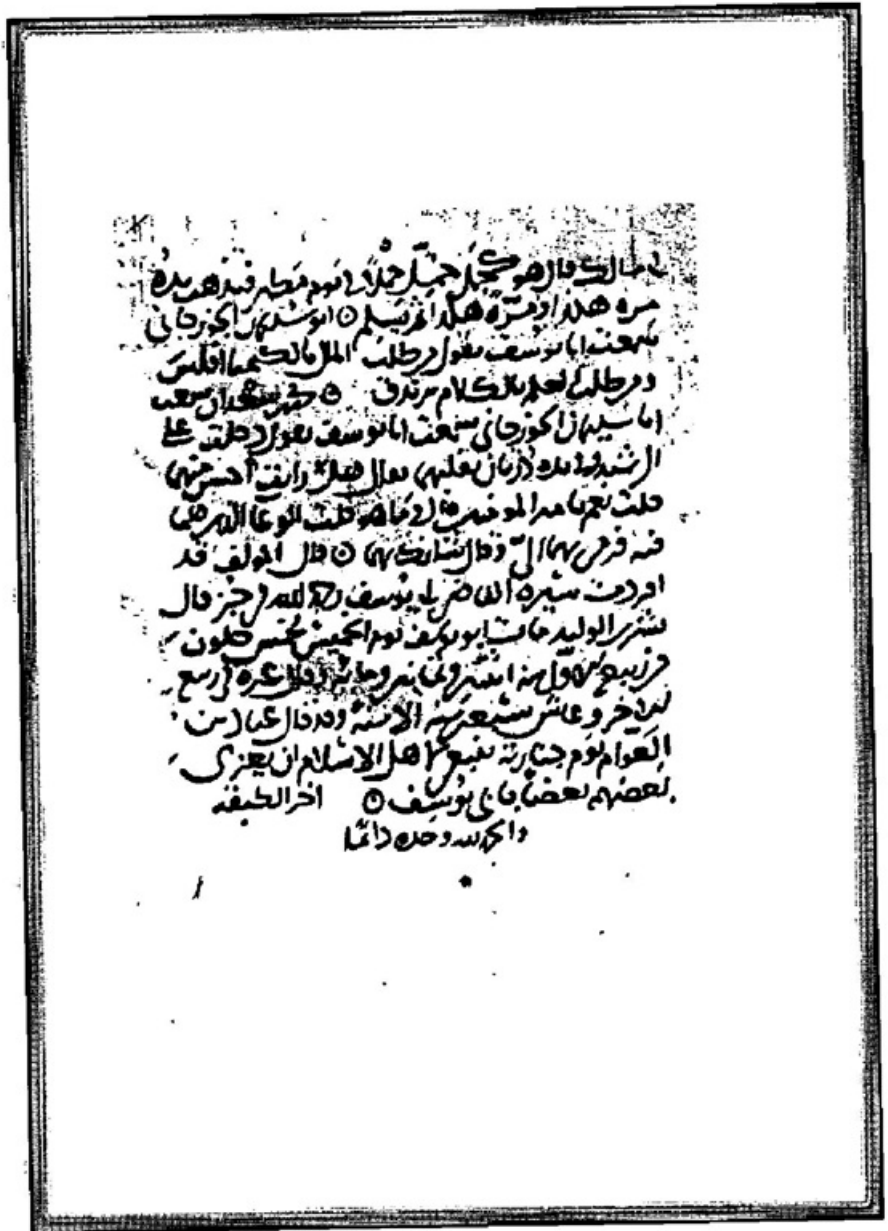 مالك قال هو كجمل حمل حملا في يوم مطير فتذهب يده
مرة هكذا ومرة هكذا ثم يسلم ⊙ ابو سليمن الجوزجاني
سمعت ابا يوسف يقول من طلب المال بالكيميا افلس
ومن طلب العلم بالكلام تزندق ⊙ سعدان سمعت
ابا سليمن الجوزجاني سمعت ابا يوسف يقول دخلت على
الرشيد وفي يده درتان يقلبهما فقال هل رايت احسن منهما
قلت نعم يا امير المومنين قال وما هو قلت الوعآ الذي هما
فيه فرمى بهما اليّ وقال شانك بهما ⊙ قال المولف قد
افردت سيرة القاضي ابي يوسف رحمه الله في جزء قال
بشر بن الوليد مات ابو يوسف يوم الخميس لخمس خلون
من ربيع الاول سنة اثنتين وثمانين ومائة وقال غيره في ربيع
الاخر وعاش سبعين سنة الا سنة وقد قال عباد بن
العوّام يوم جنازته ينبغي لاهل الاسلام ان يعزى
بعضهم بعضا بابي يوسف ⊙ اخر الطبقة
والحمد لله وحده دائما